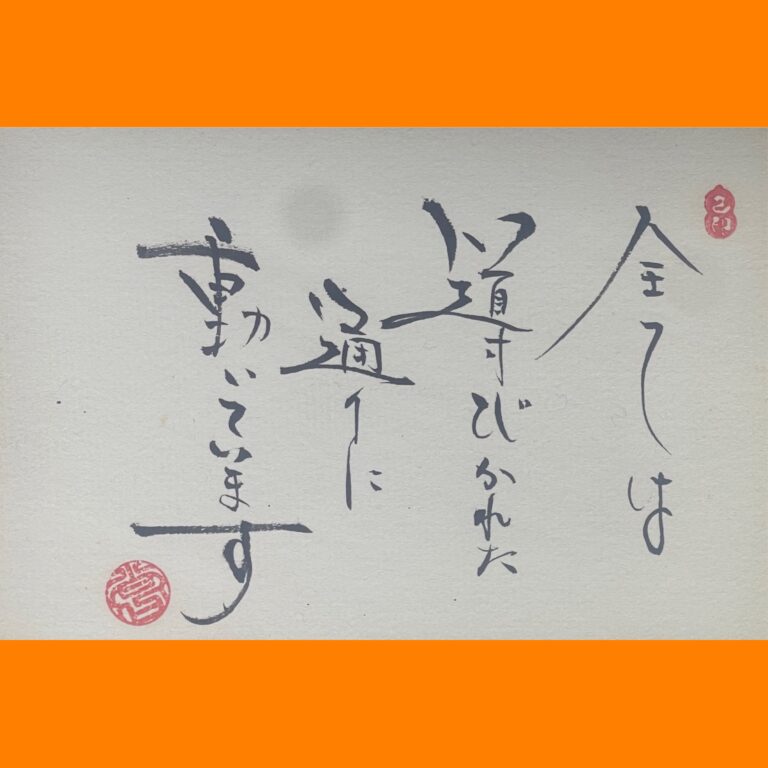 全ては
導びかれた
通りに
動いています